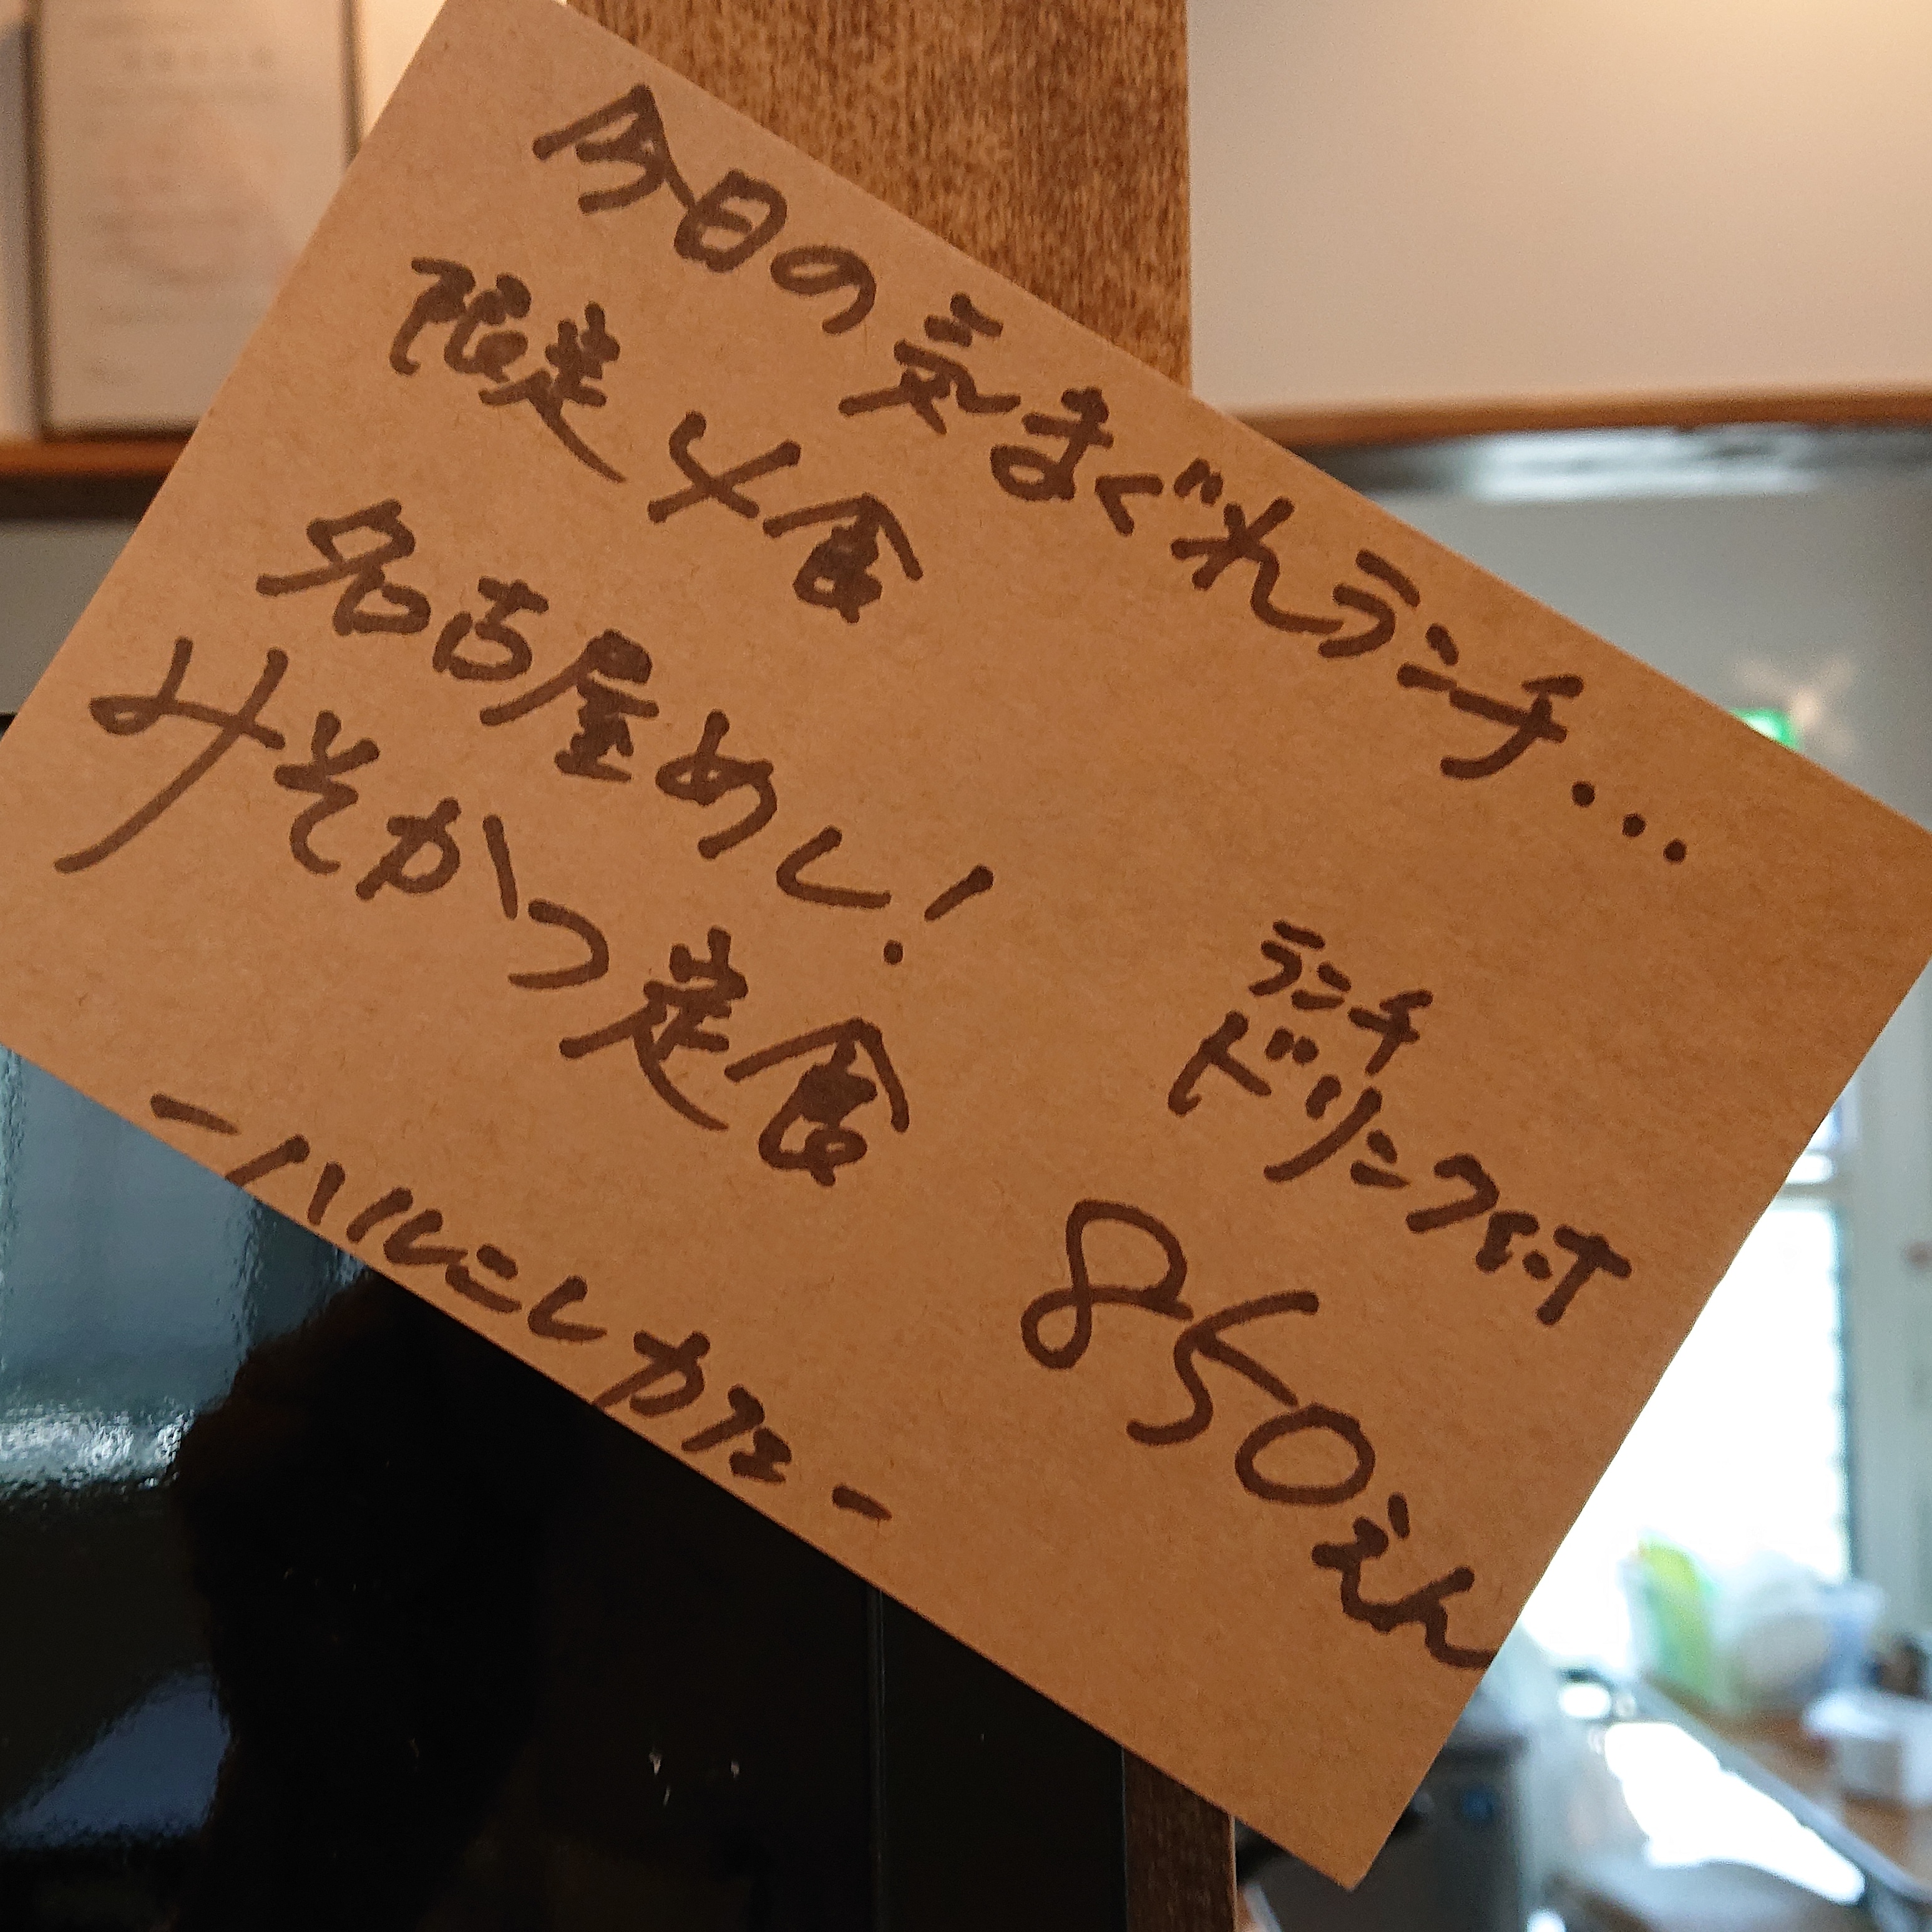 今日の気まぐれランチ...
限定4食
名古屋めし!
みそかつ定食
ランチ
ドリンク付
850えん
-ハルニレカフェ-